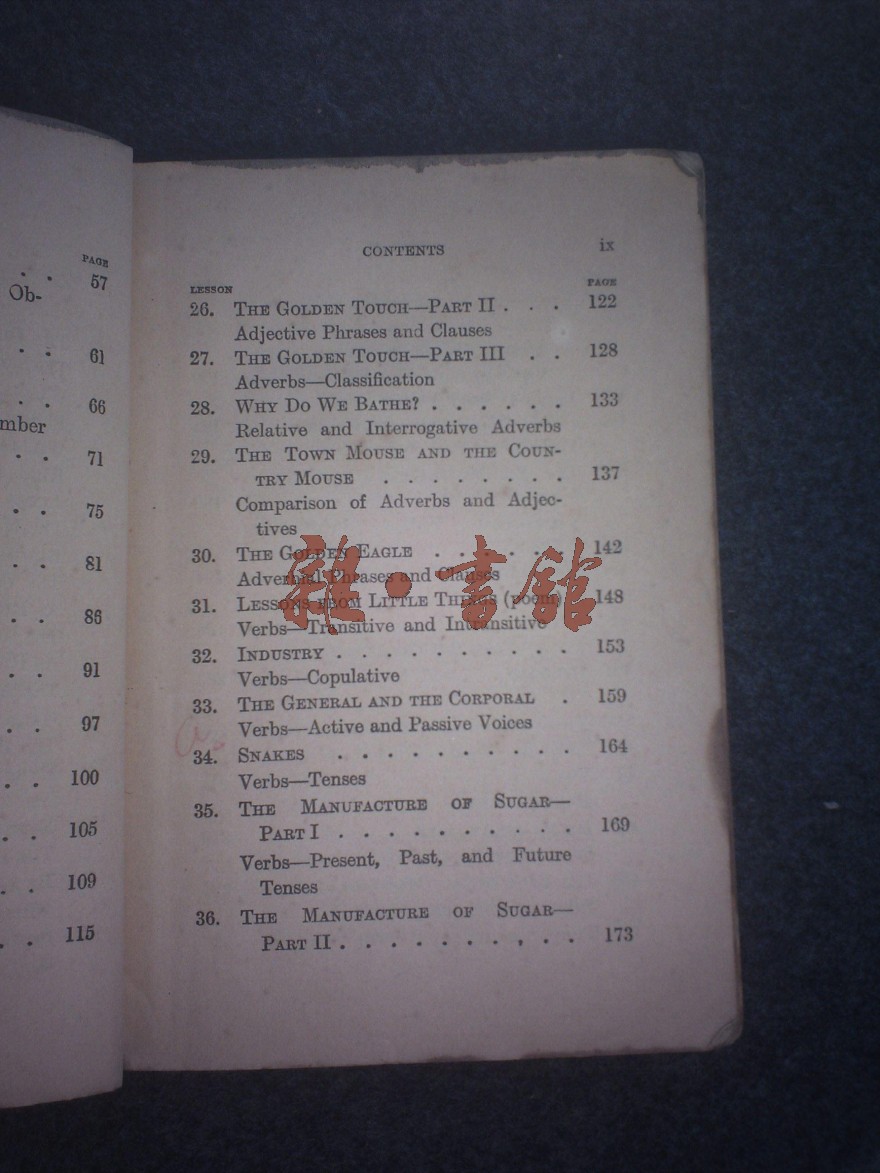 PAGE
57
Ob-
61
66
mber
71
75
81
86
91
97
100
105
109
115
CONTENTS ix
LESSON PAGE
26. THE GOLDEN TOUCH—PART II . . . 122
Adjective Phrases and Clauses
27. THE GOLDEN TOUCH—PART III . . 128
Adverbs—Classification
28. WHY DO WE BATHE? . . . . . . 133
Relative and Interrogative Adverbs
29. THE TOWN MOUSE AND THE COUN-
TRY MOUSE . . . . . . . . 137
Comparison of Adverbs and Adjec-
tives
30. THE GOLDEN EAGLE . . . . . . 142
Adverbial Phrases and Clauses
31. LESSONS FROM LITTLE THINGS (poem) 148
Verbs—Transitive and Intransitive
32. INDUSTRY . . . . . . . . . . 153
Verbs—Copulative
33. THE GENERAL AND THE CORPORAL . 159
Verbs—Active and Passive Voices
34. SNAKES . . . . . . . . . . 164
Verbs—Tenses
35. THE MANUFACTURE OF SUGAR—
PART I . . . . . . . . . . 169
Verbs—Present, Past, and Future
Tenses
36. THE MANUFACTURE OF SUGAR—
PART II . . . . . . . . . . 173
雜·書館